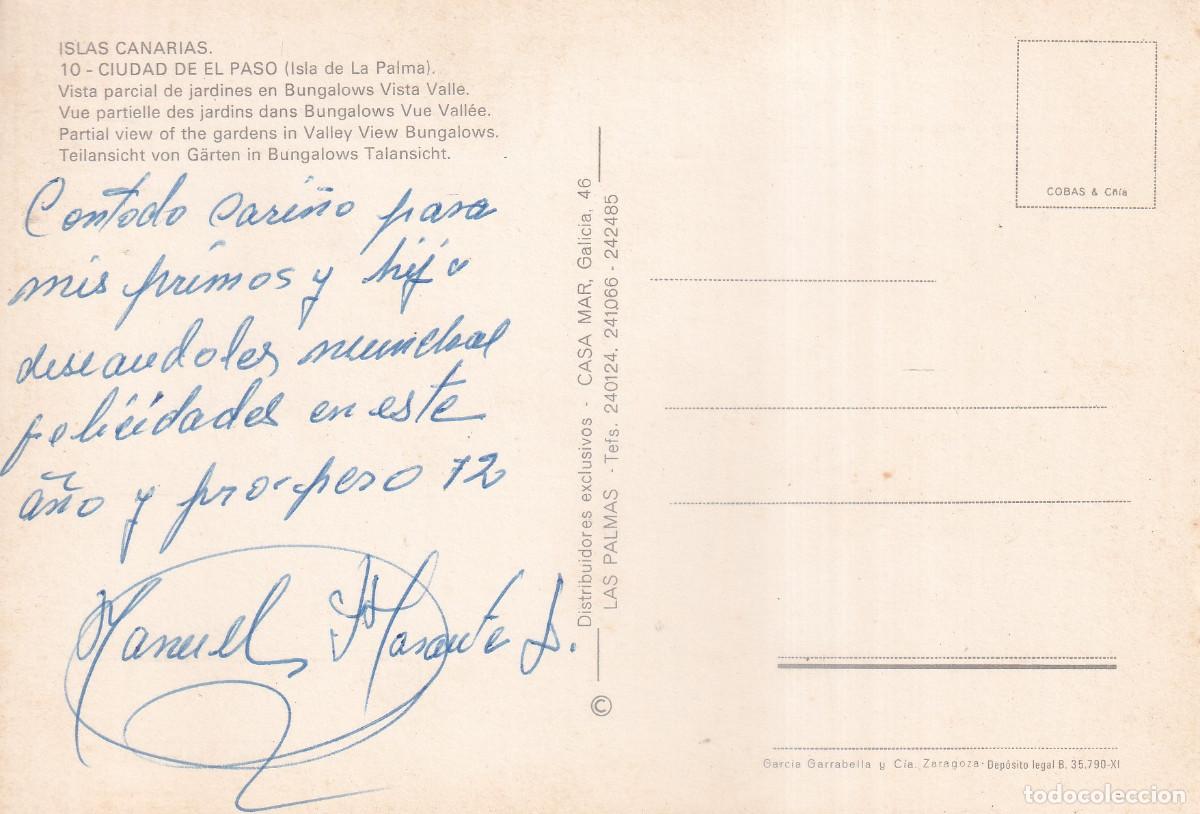 ISLAS CANARIAS.
10 - CIUDAD DE EL PASO (Isla de La Palma).
Vista parcial de jardines en Bungalows Vista Valle.
Vue partielle des jardins dans Bungalows Vue Vallée.
Partial view of the gardens in Valley View Bungalows.
Teilansicht von Gärten in Bungalows Talansicht.
Contodo cariño para
mis primos y hijo
deseandoles munchas
felicidades en este
año y prospero 72
Manuel
Distribuidores exclusivos - CASA MAR, Galicia, 46
LAS PALMAS - Tefs. 240124. 241.066 - 242485
©
COBAS & Cñía
García Garrabella y Cía. Zaragoza - Depósito legal B. 35.790-XI
todocoleccion